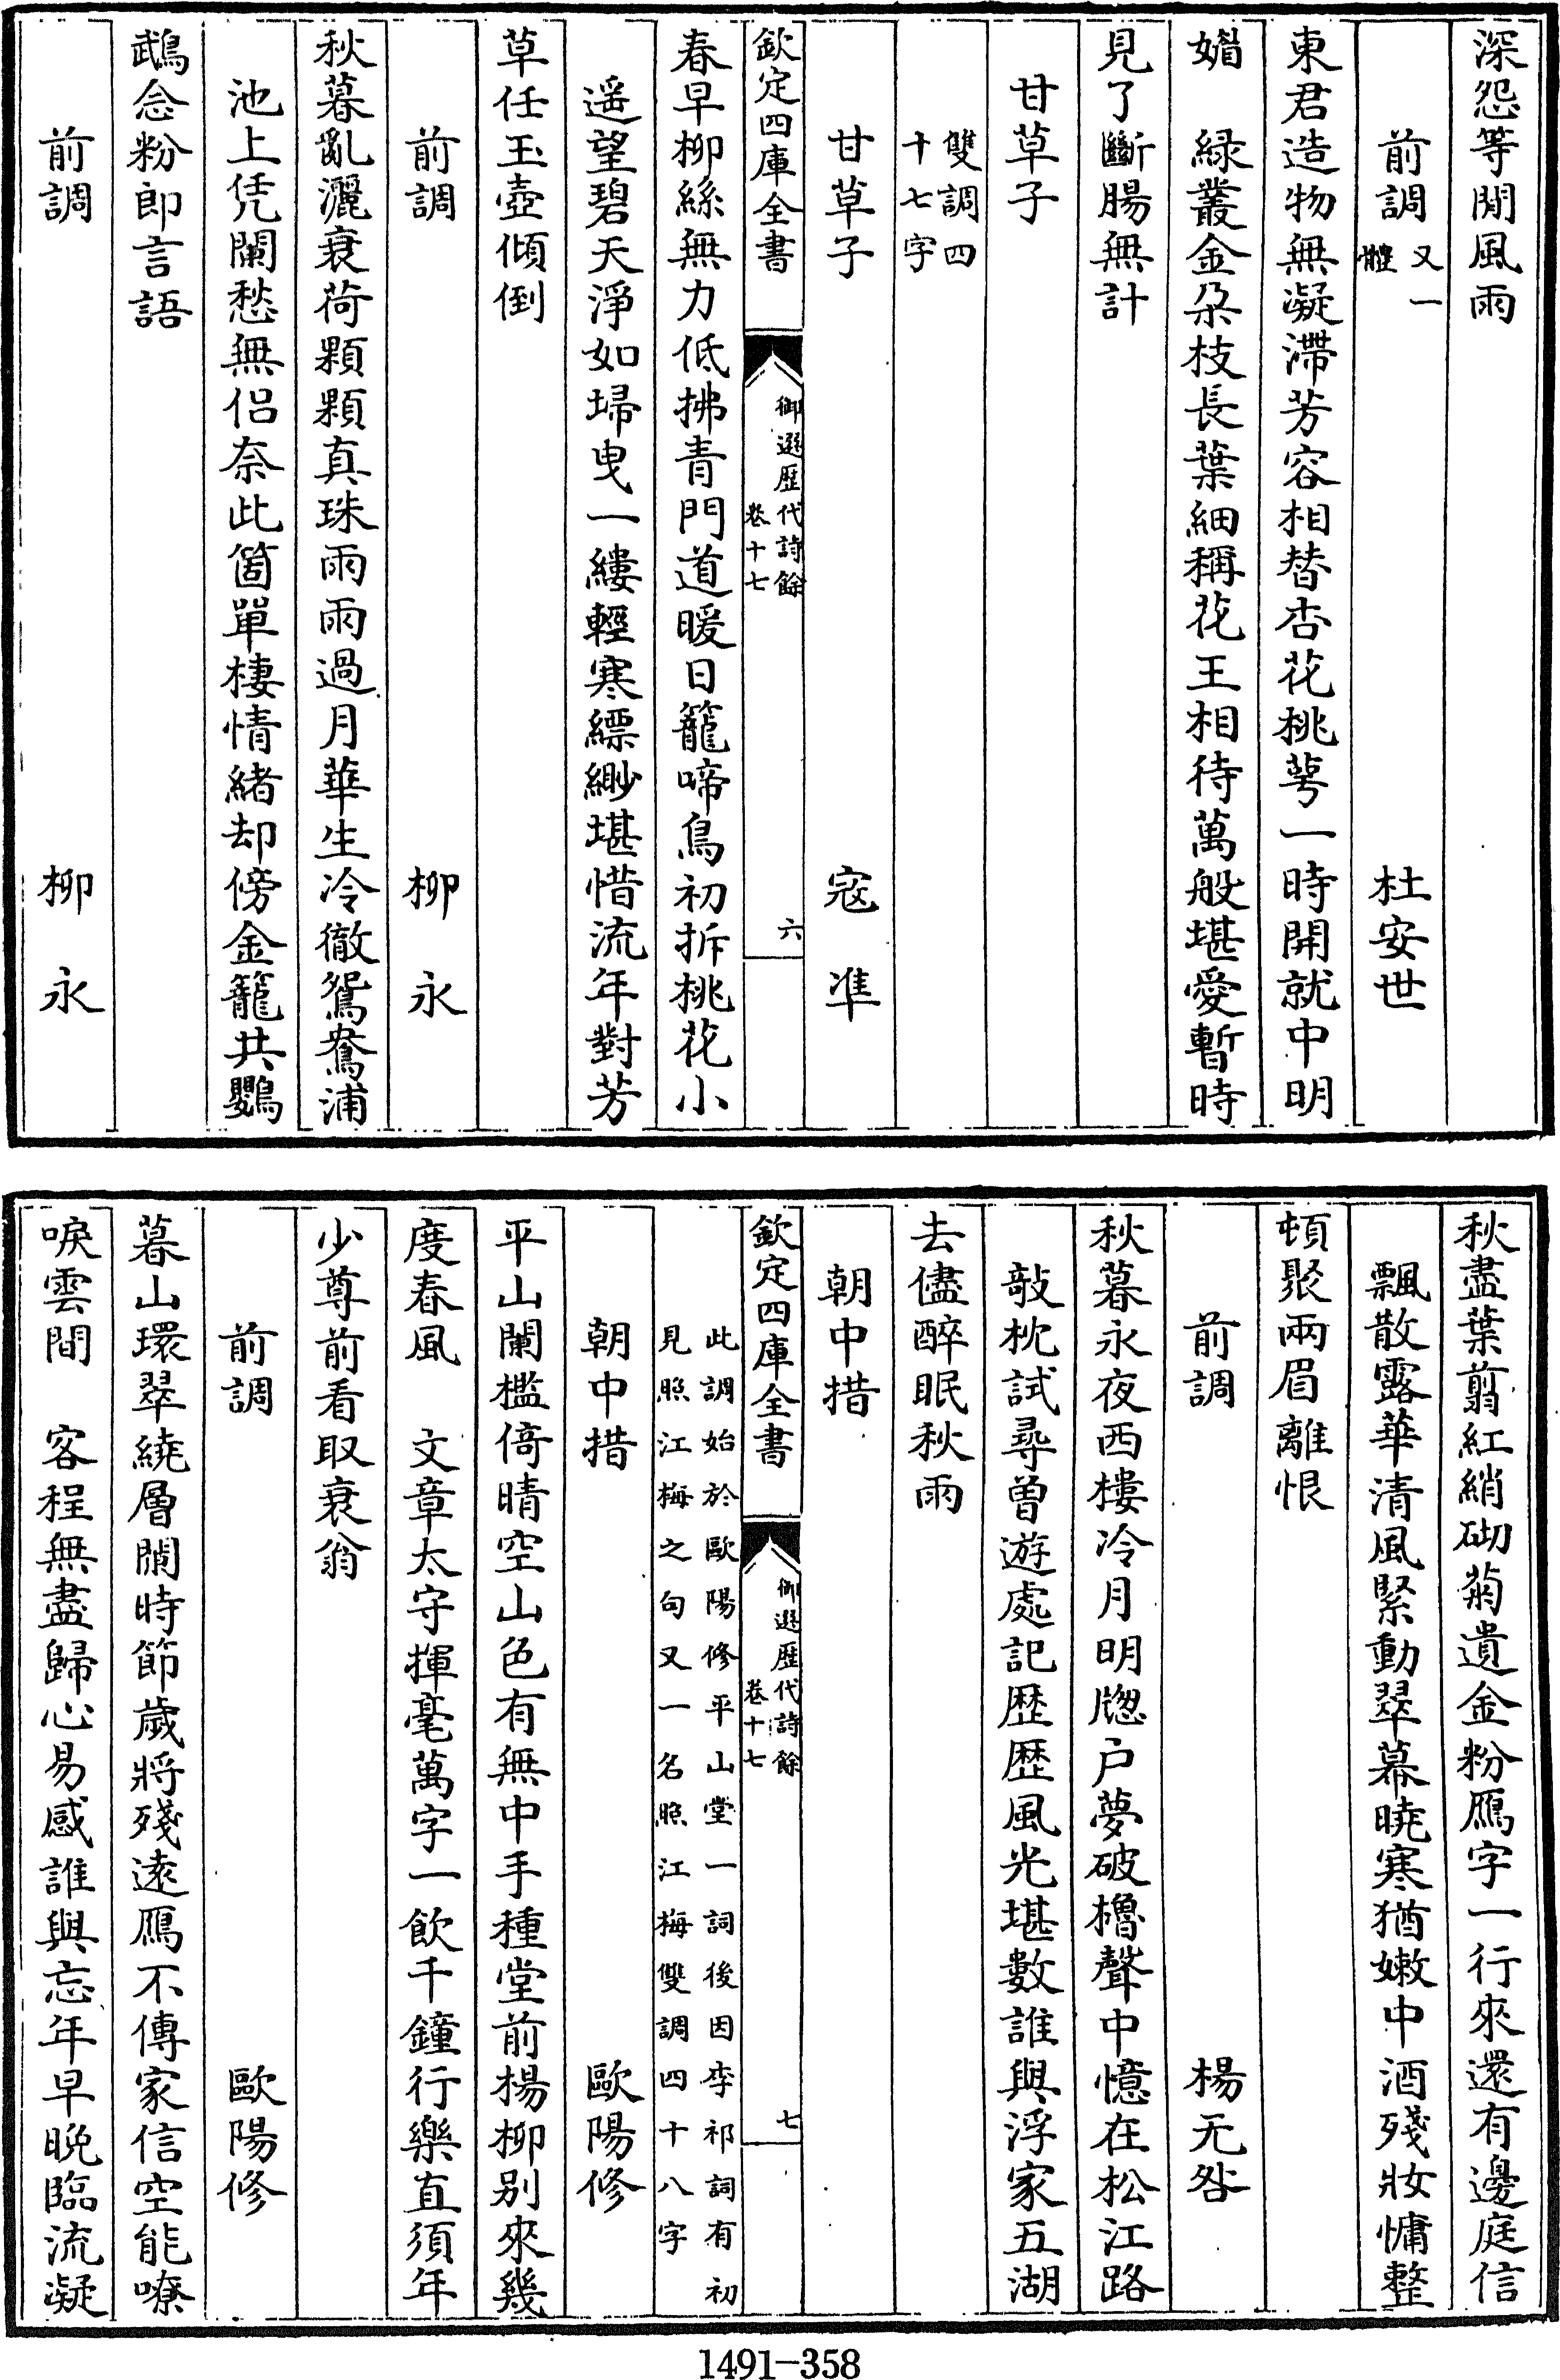 深怨等閒風雨
前調又一體　杜安世
東君造物無凝滯芳容相替杏花桃萼一時開就中明
媚　緑叢金朶枝長葉細稱花王相待萬般堪愛暫時
見了斷腸無計
甘草子
雙調四
十七字
甘草子　寇凖
欽定四庫全書　御選歷代詩餘卷十七　六
春早柳絲無力低拂青門道暖日籠啼鳥初拆桃花小
遥望碧天淨如埽曳一縷輕寒縹緲堪惜流年對芳
草任玉壺傾倒
前調　柳永
秋暮亂灑衰荷顆顆真珠雨雨過月華生冷徹鴛鴦浦
池上凭闌愁無侣奈此箇單棲情緒却傍金籠共鸚
鵡念粉郎言語
前調　柳永
秋盡葉翦紅綃砌菊遺金粉鴈字一行來還有邊庭信
飄散露華清風緊動翠幕曉寒猶嫩中酒殘妝慵整
頓聚兩眉離恨
前調　楊无咎
秋暮永夜西樓冷月明牕户夢破櫓聲中憶在松江路
敲枕試尋曾遊處記歴歴風光堪數誰與浮家五湖
去儘醉眠秋雨
朝中措
欽定四庫全書　御選歷代詩餘卷十七　七
此調始於歐陽修平山堂一詞後因李祁詞有初
見照江梅之句又一名照江梅雙調四十八字
朝中措　歐陽修
平山闌檻倚晴空山色有無中手種堂前楊柳别來幾
度春風　文章太守揮毫萬字一飲千鐘行樂直須年
少尊前看取衰翁
前調　歐陽修
暮山環翠繞層闌時節歲將殘遠鴈不傳家信空能嘹
唳雲間　客程無盡歸心易感誰與忘年早晚臨流凝
1491-358